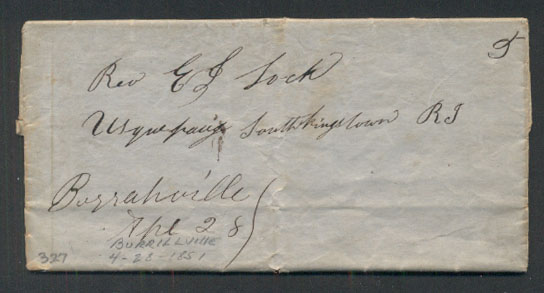 5
Rev E L Lock
Usquepaug Southkingstown RI
Burrahville
Apl 28
BURRILLVILLE
4-28-1851
327